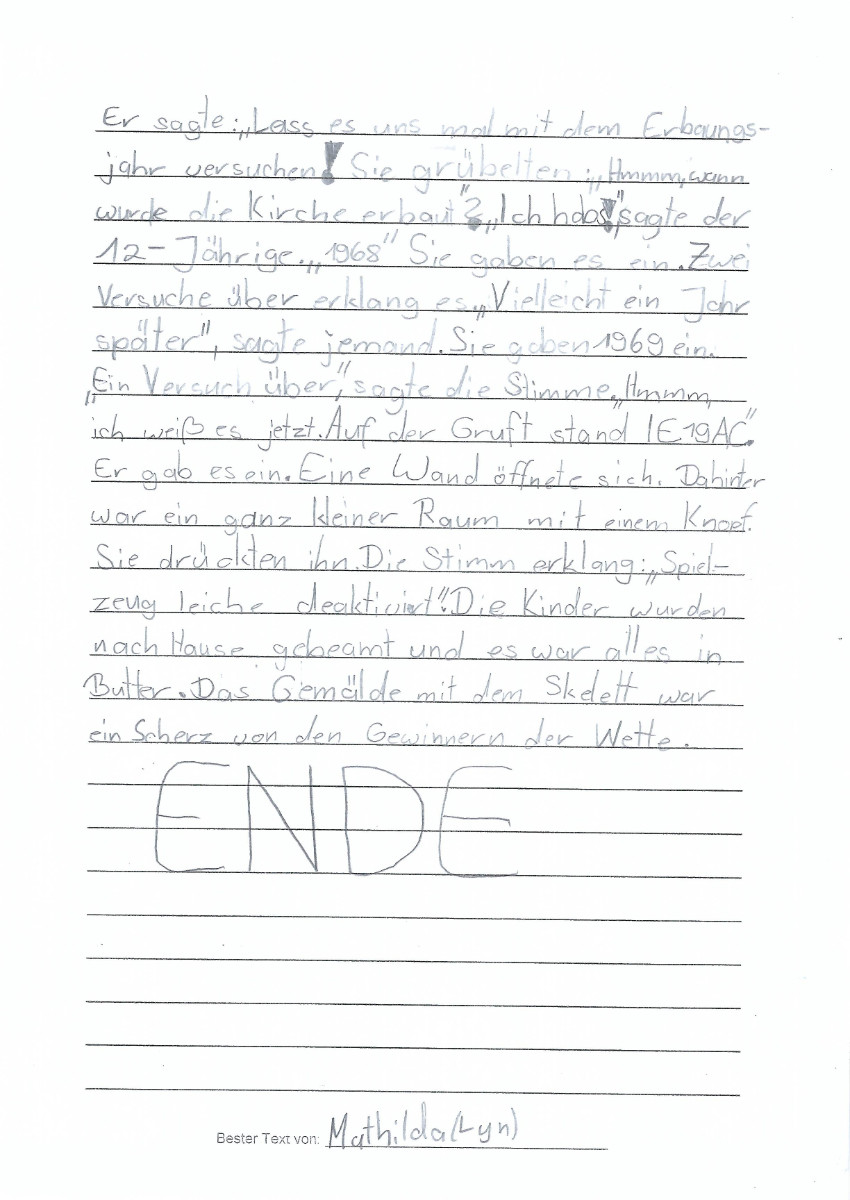 Er sagte: „Lass es uns mal mit dem Erbaungs-
jahr versuchen! Sie grübelten: „Hmmm, wann
wurde die Kirche erbaut"? „Ich habs!" sagte der
12-Jährige. „1968" Sie gaben es ein. Zwei
Versuche über erklang es. „Vielleicht ein Jahr
später", sagte jemand. Sie gaben 1969 ein.
„Ein Versuch über", sagte die Stimme. „Hmmm,
ich weiß es jetzt. Auf der Gruft stand 1E19AC".
Er gab es ein. Eine Wand öffnete sich. Dahinter
war ein ganz kleiner Raum mit einem Knopf.
Sie drückten ihn. Die Stimm erklang: „Spiel-
zeug leiche deaktiviert"! Die Kinder wurden
nach Hause gebeamt und es war alles in
Butter. Das Gemälde mit dem Skelett war
ein Scherz von den Gewinnern der Wette.
ENDE
Bester Text von: Mathilda (Lyn)